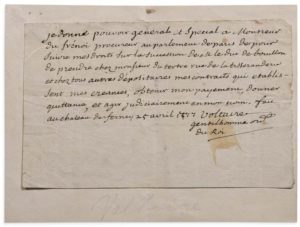 je donne pouvoir general et special a Monsieur
du frénoi procureur au parlement de paris de pour
suivre mes droits sur la succession de M le duc de bouillon
de prendre chez monsieur du tertre rue de la
et chez tous autres dépositaires mes contrats qui etablis
sent mes creances, obtenir mon payement, donner
quittance, et agir judiciairement en mon nom. fait
au chateau de ferney avril
Voltaire
gentilhomme ord
du Roi
Voltaire